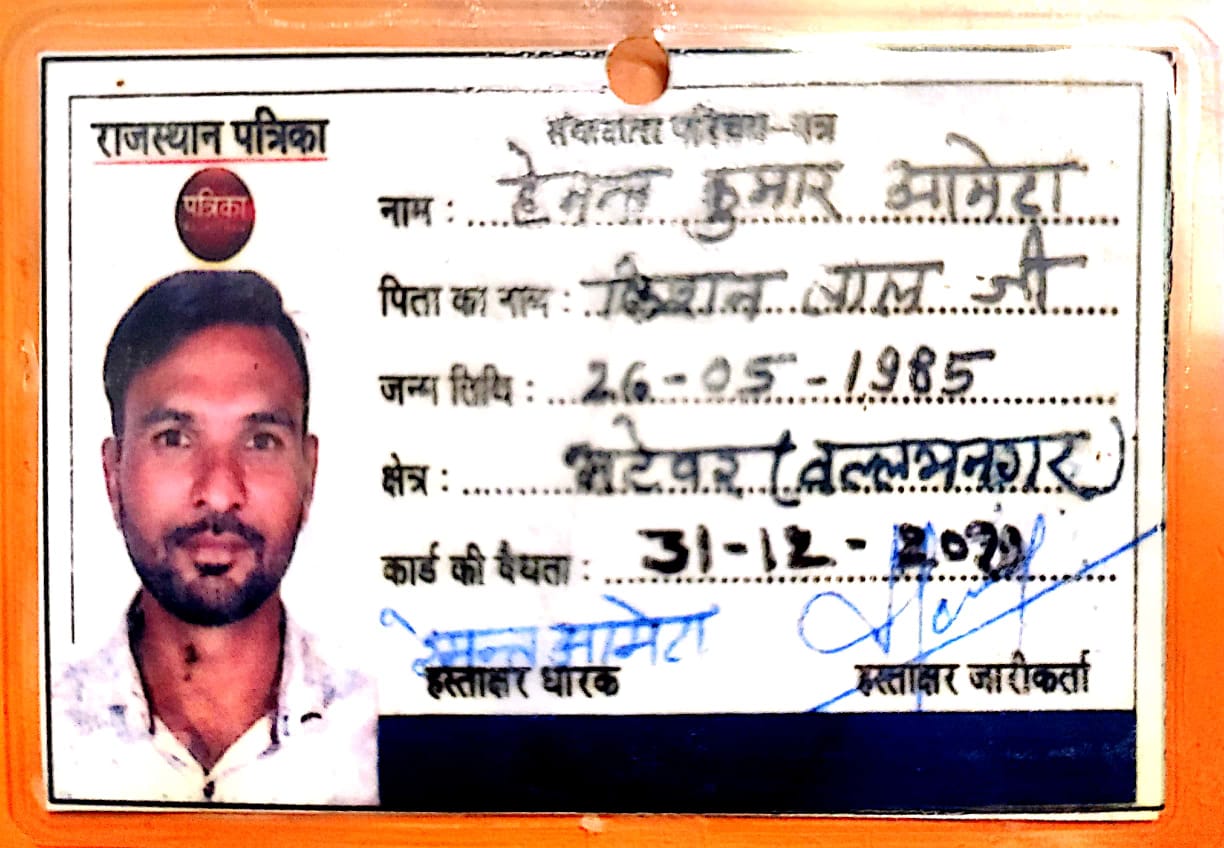 राजस्थान पत्रिका
पत्रिका
संवाददाता परिचय-पत्र
नाम : हेमन्त कुमार आमेटा
पिता का नाम : किशन लाल जी
जन्म तिथि : 26-05-1985
क्षेत्र : भटेवर (वल्लभनगर)
कार्ड की वैधता : 31-12-
हेमन्त आमेटा
हस्ताक्षर धारक
हस्ताक्षर जारीकर्ता